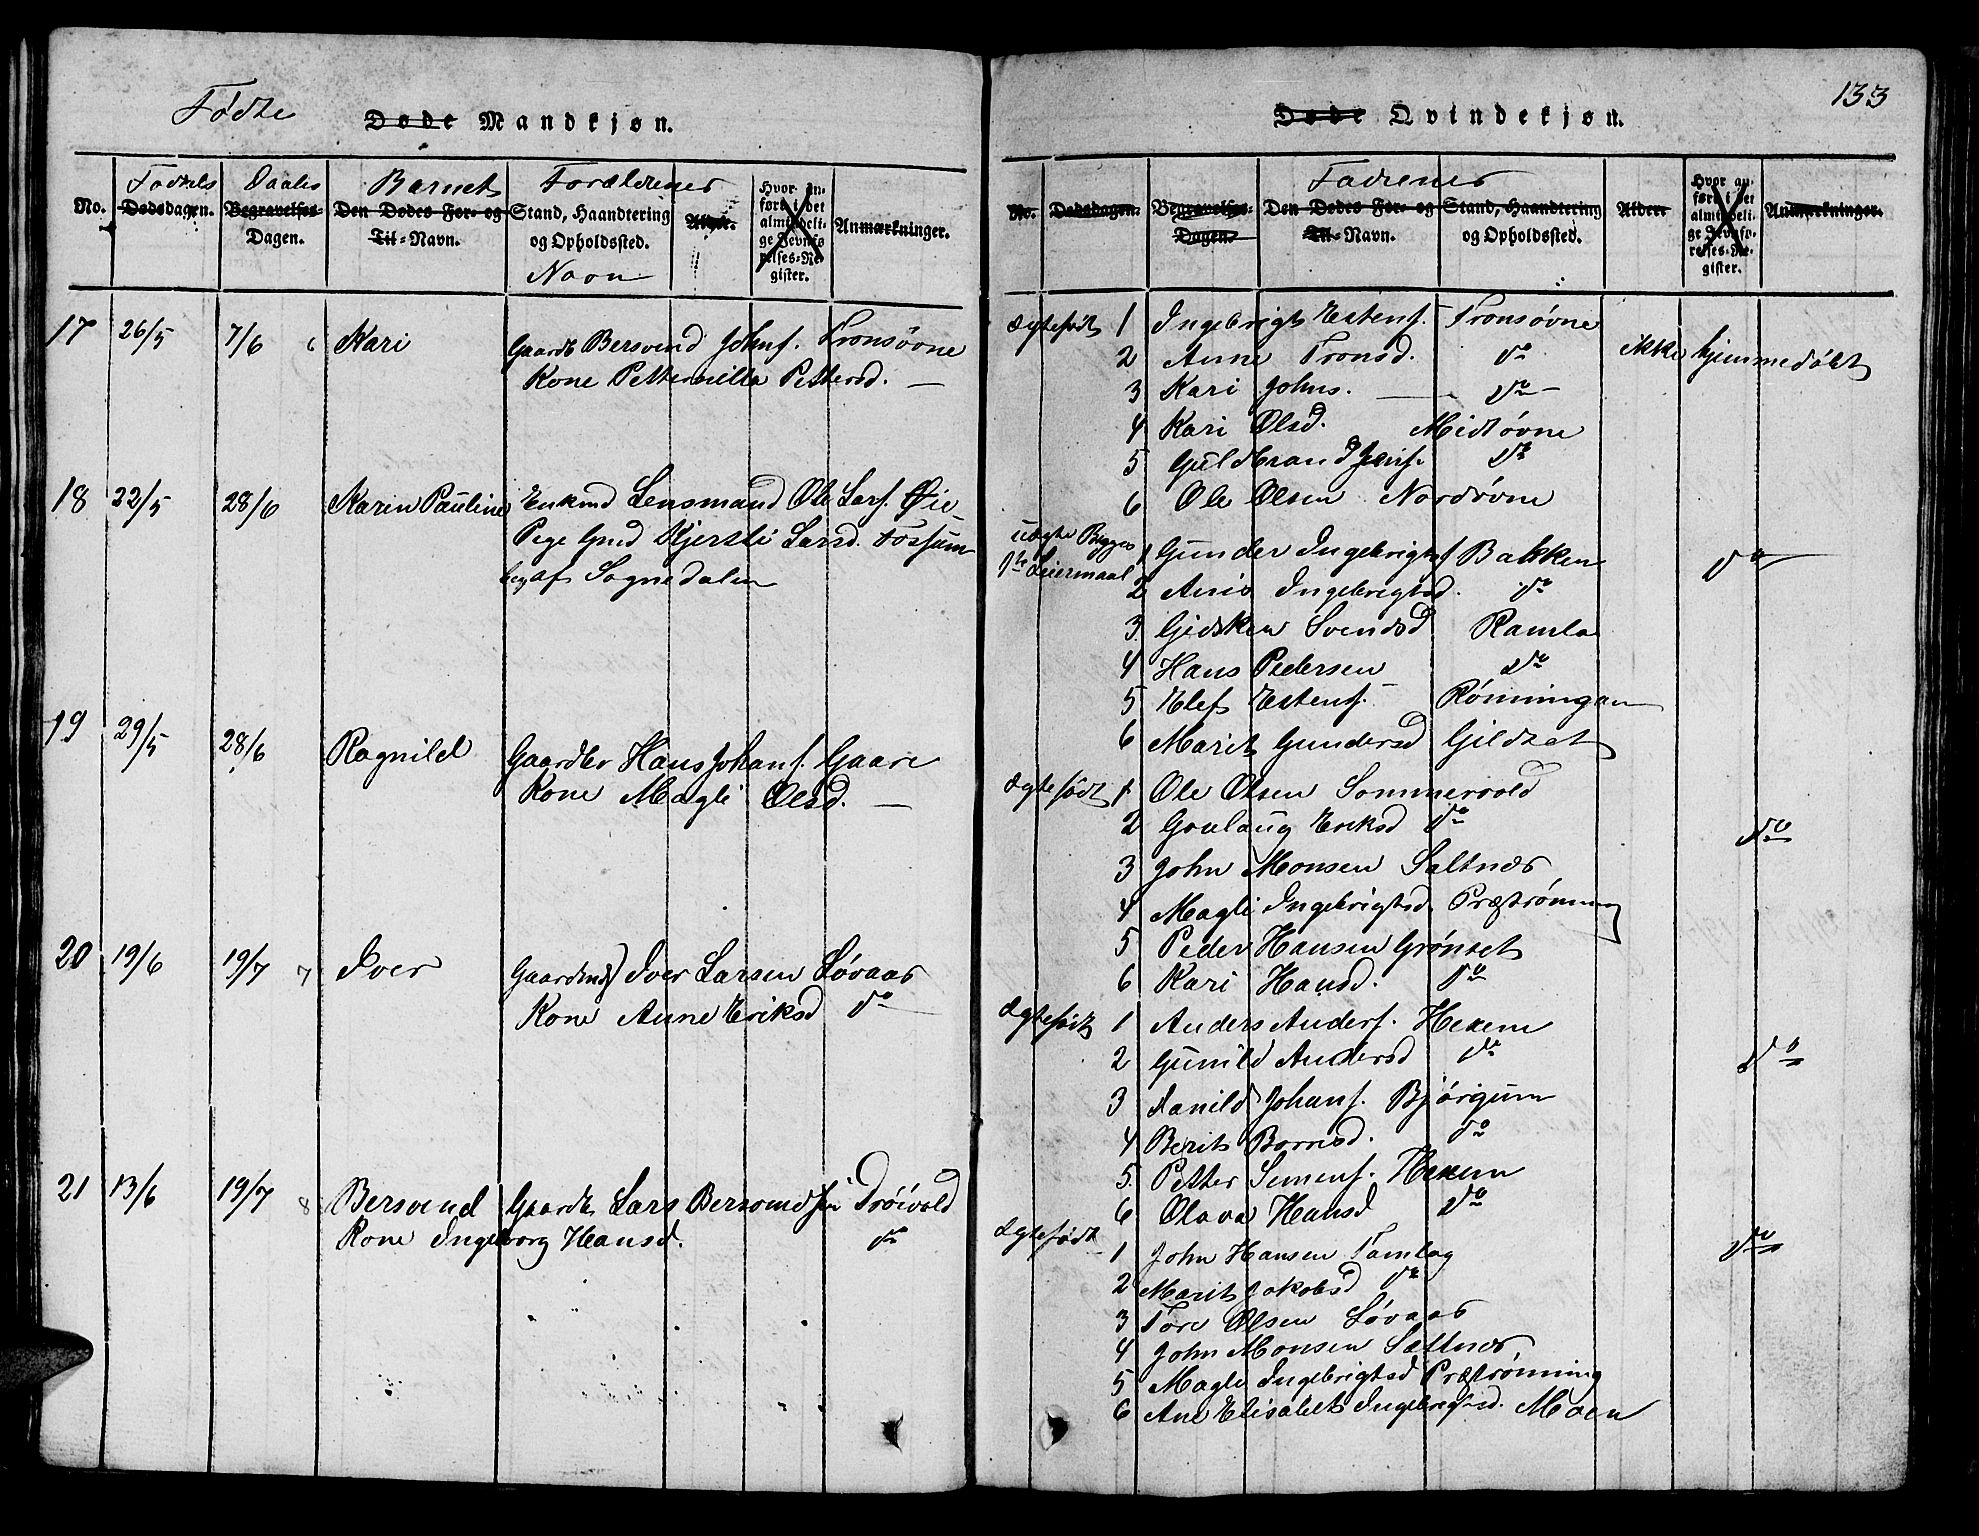 Fødte
Døde Mandkjøn.
Fødsels Daabs Barnet Forældrenes
No. Dødsdagen. Begravelses-Dagen. Den Dødes For- og Til-Navn. Stand, Haandtering og Opholdssted. Alder. Hvor anført i det almindelige Jevnførelses-Register. Anmærkninger.
Navn
17 26/5 7/6 6 Kari Gaardb Bersvend Johns. Tronsøvne
Kone Petternille Pettersd. —
18 22/5 28/6 Karen Pauline Enkmd Lensmand Ole Lars. Øie
Pige Gud Kjersti Larsd. Fossum
beg af Sognedalen
19 29/5 28/6 Ragnild Gaardbr Hans Johans. Gaare
Kone Magli Olsd. —
20 19/6 19/7 7 Iver Gaardmd Iver Larsen Løvaas
Kone Anne Eriksd do
21 13/6 19/7 8 Bersvend Gaardb Lars Bersvendsen Drøivold
Kone Ingeborg Hansd. do
133
Døde Qvindekjøn.
Fadrenes
No. Dødsdagen. Begravelses-Dagen. Den Dødes For- og Til-Navn. Stand, Haandtering og Opholdssted. Alder. Hvor anført i det almindelige Jevnførelses-Register. Anmærkninger.
ægtefødt 1 Ingebrigt Estens. Tronsøvne
2 Anne Tronsd. do ikke hjemmedøbt
3 Kari Johns. — do —
4 Kari Olsd. Midtøvne
5 Guldbrand Jons. do
6 Ole Olsen Nordøvne
uægte Begges
1te Leiermaal 1 Gunder Ingebrigts Bakken do
2 Anne Ingebrigtsd. do
3 Gidsken Svendsd Ramlo
4 Hans Pedersen do
5 Elef Estens. Rønningan
6 Marit Gundersd Gildset
ægtefødt 1 Ole Olsen Sommervold
2 Gunlaug Eriksd do do
3 John Monsen Saltnes
4 Magli Ingebrigtsd. Præstrønning
5 Peder Hansen Grønset
6 Kari Hansd. do
ægtefødt 1 Anders Anders. Hexem
2 Gunild Andersd do do
3 Ranild Johans. Bjørgum
4 Berit Bornsd. do
5 Petter Simens. Hexem
6 Olava Hansd do
ægtefødt
1 John Hansen Tamlag do
2 Marit Jakobsd do
3 Tore Olsen Løvaas
4 John Monsen Sæltnes
5 Magli Ingebrigtsd Præstrønning
6 Ane Elisabet Ingebrigtsd. Moen